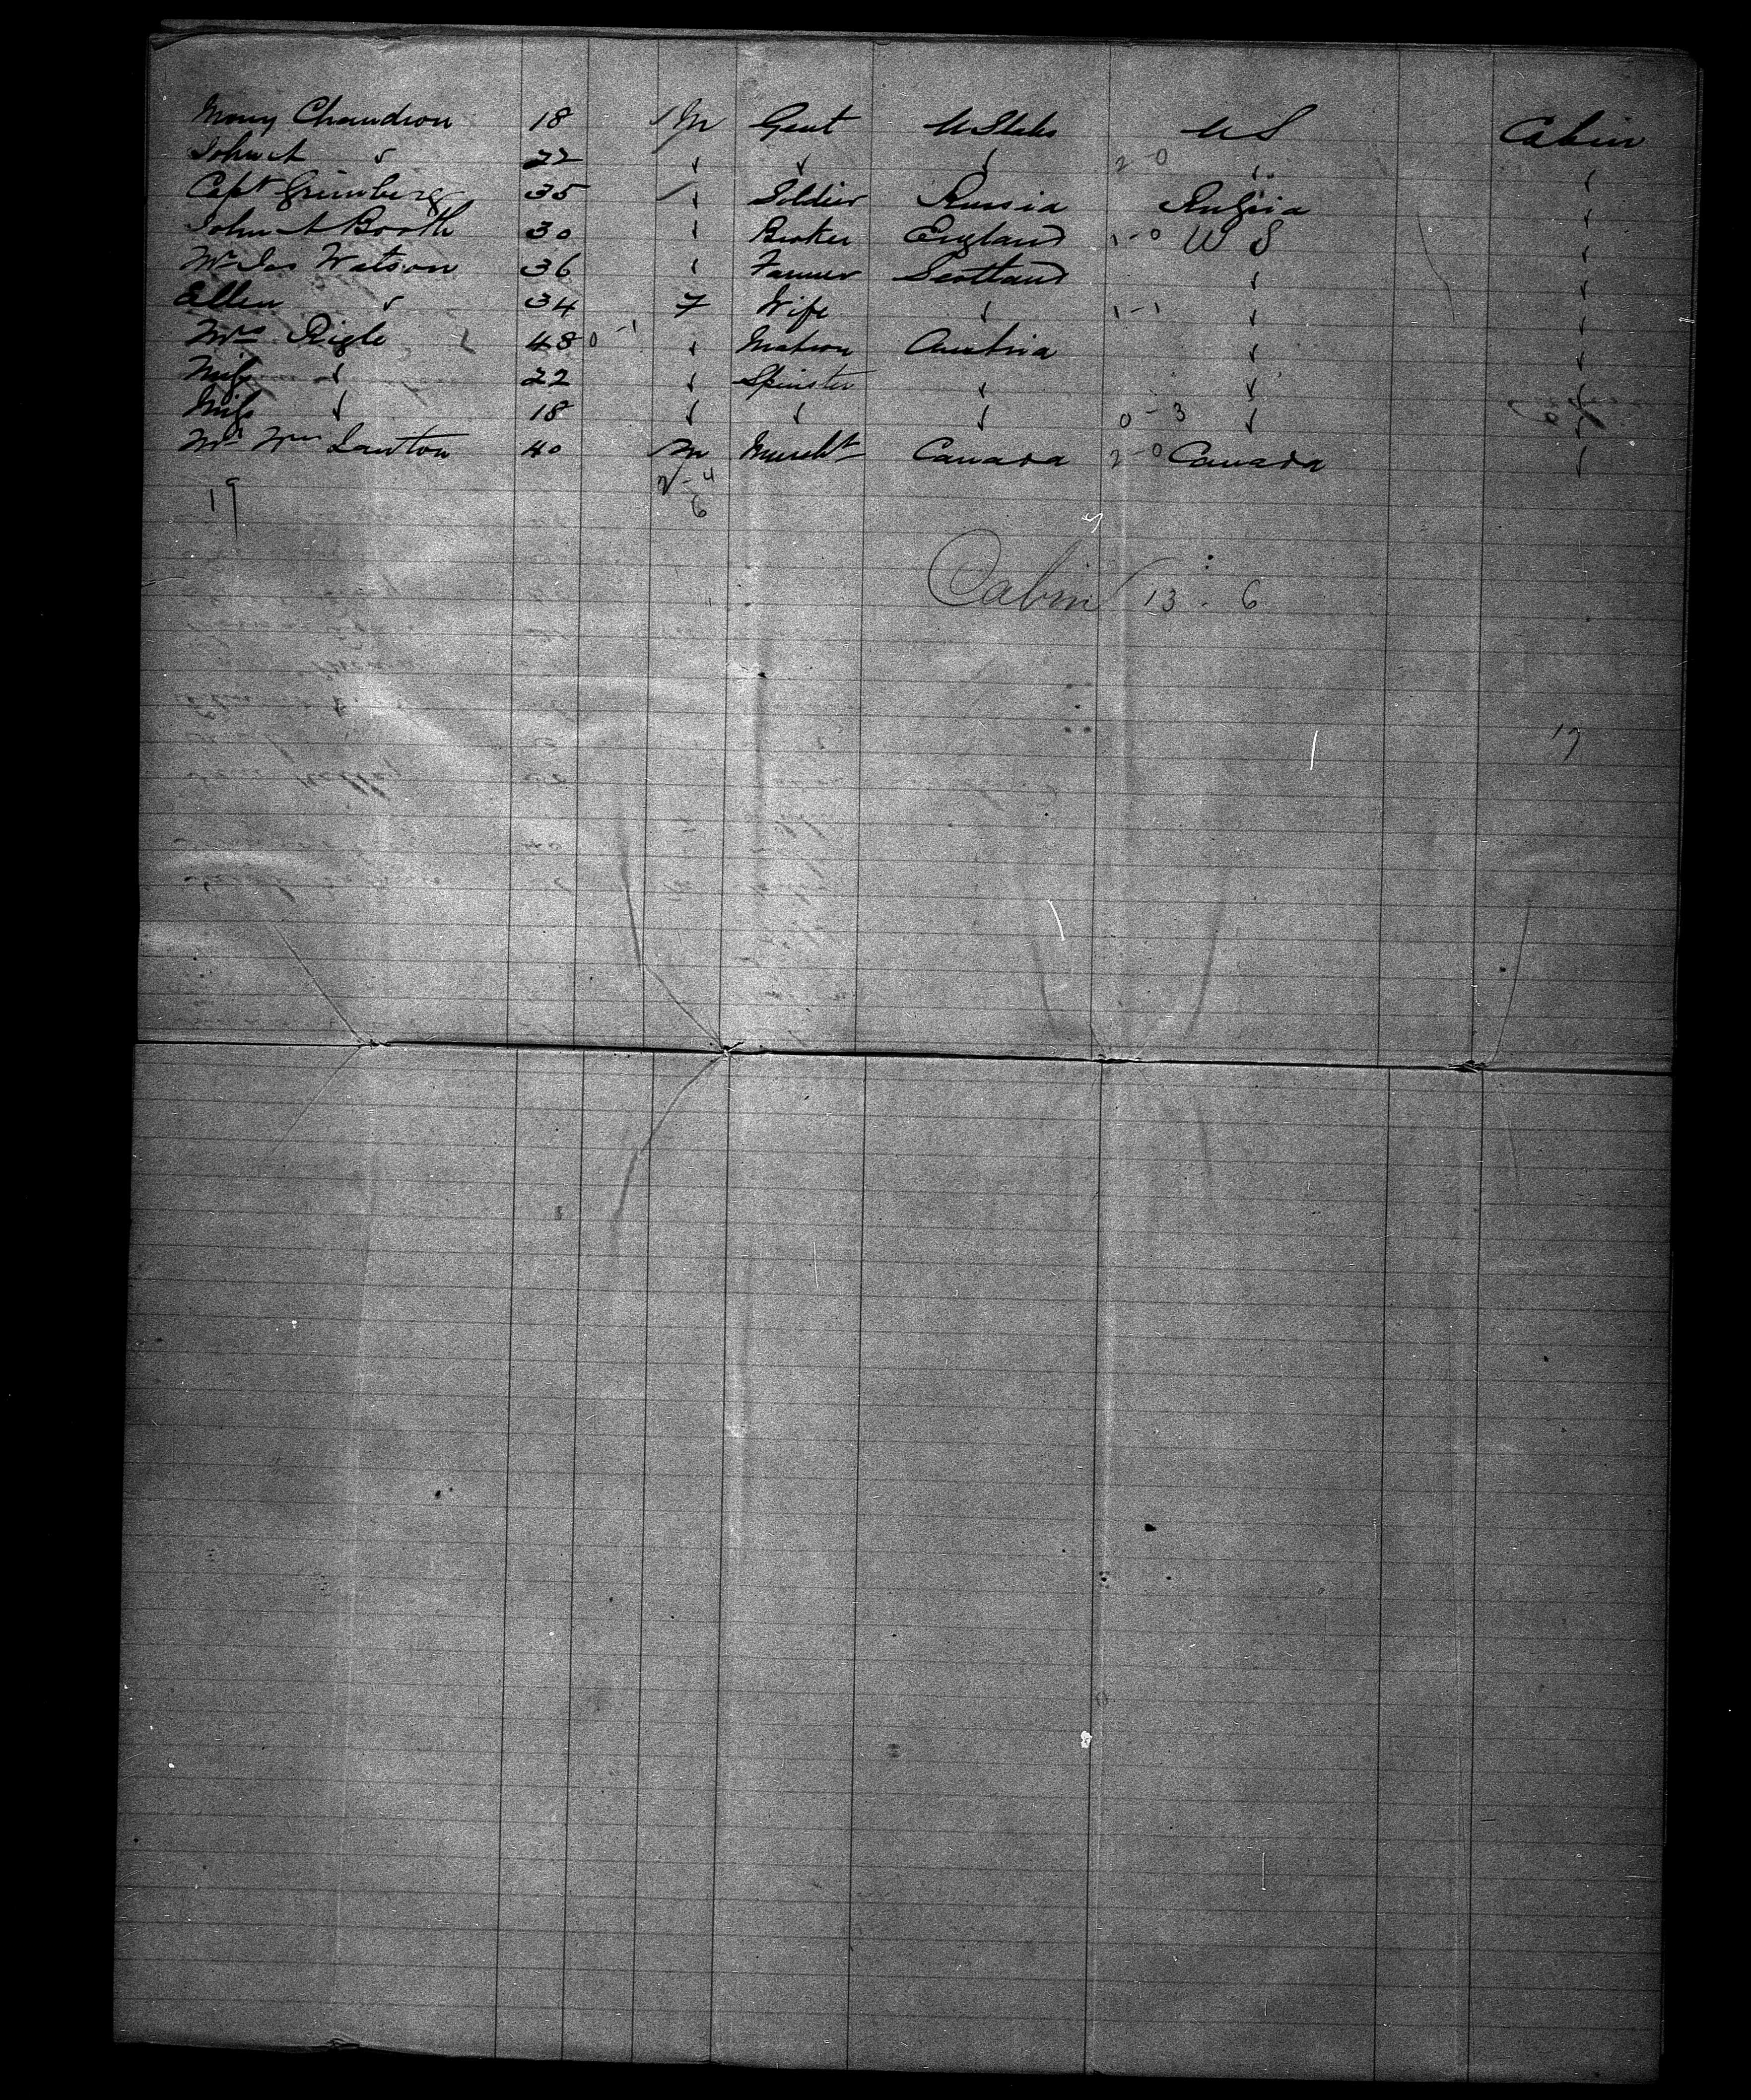 Chaudron 18 M Gent U States U S Cabin
John A " 22 " " " 2-0 " "
Capt Grimberg 35 " Soldier Russia Russia "
John A Booth 30 " Broker England 1-0 U S "
Mr Jas Watson 36 " Farmer Scotland " "
Ellen " 34 F Wife " 1-1 " "
Mrs Rigle 48 0-1 " Matron Austria " "
Miss " 22 " Spinster " " "
Miss " 18 " " " 0-3 " "
Mr Wm Lawton 40 M Mercht Canada 2-0 Canada "
19 2-4
6
Cabin 13 - 6